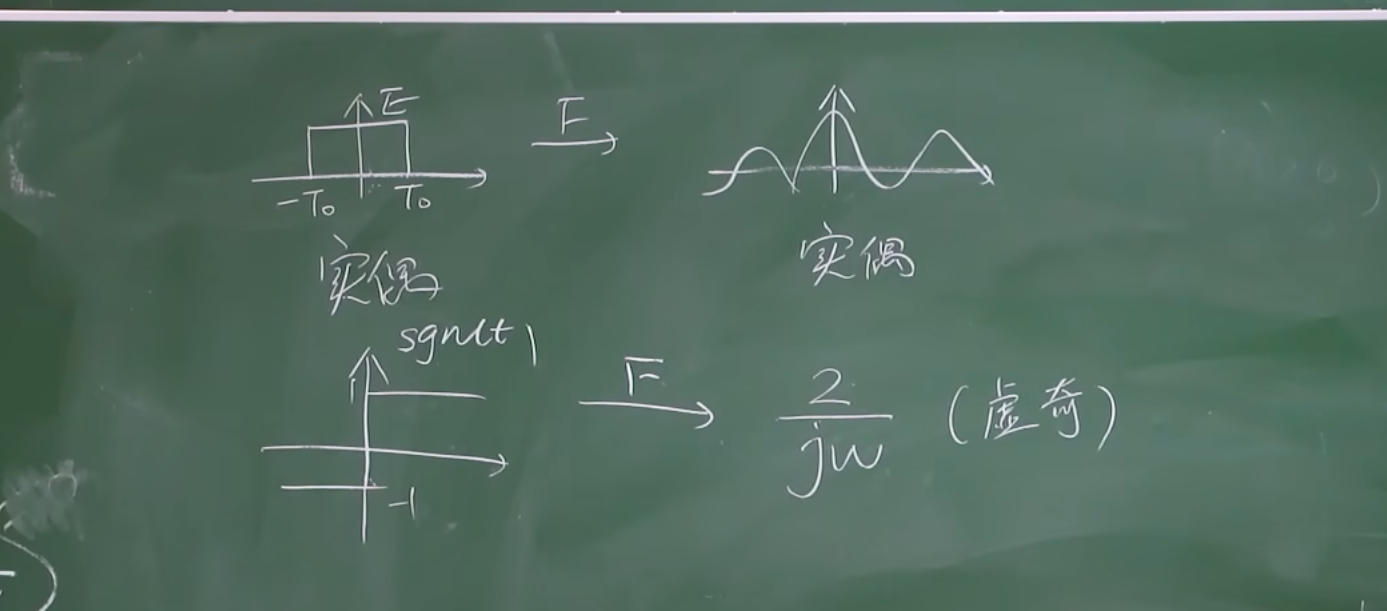 E
F
-T₀ T₀
实偶 实偶
sgn(t)
F
2
jω (虚奇)
-1